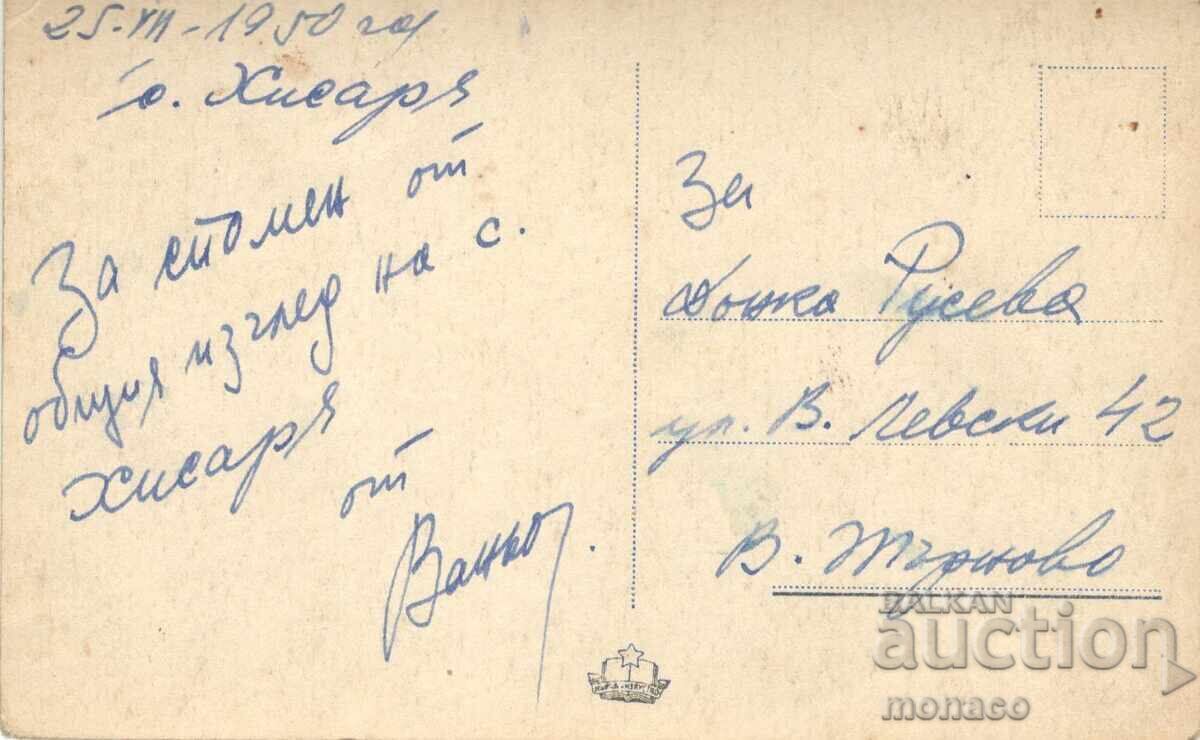 25-VII-1950 год
с. Хисаря
За спомен от
общия изглед на с.
Хисаря
от
Ваньо.
За
Донка Русева
ул. В. Левски 42
В. Търново
BALKAN
auction
monaco